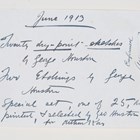 June 1913
Twenty dry-point sketches
by George Houston
Two Etchings by George
Houston
Special set, one of 25,
printed & selected by Geo Houston